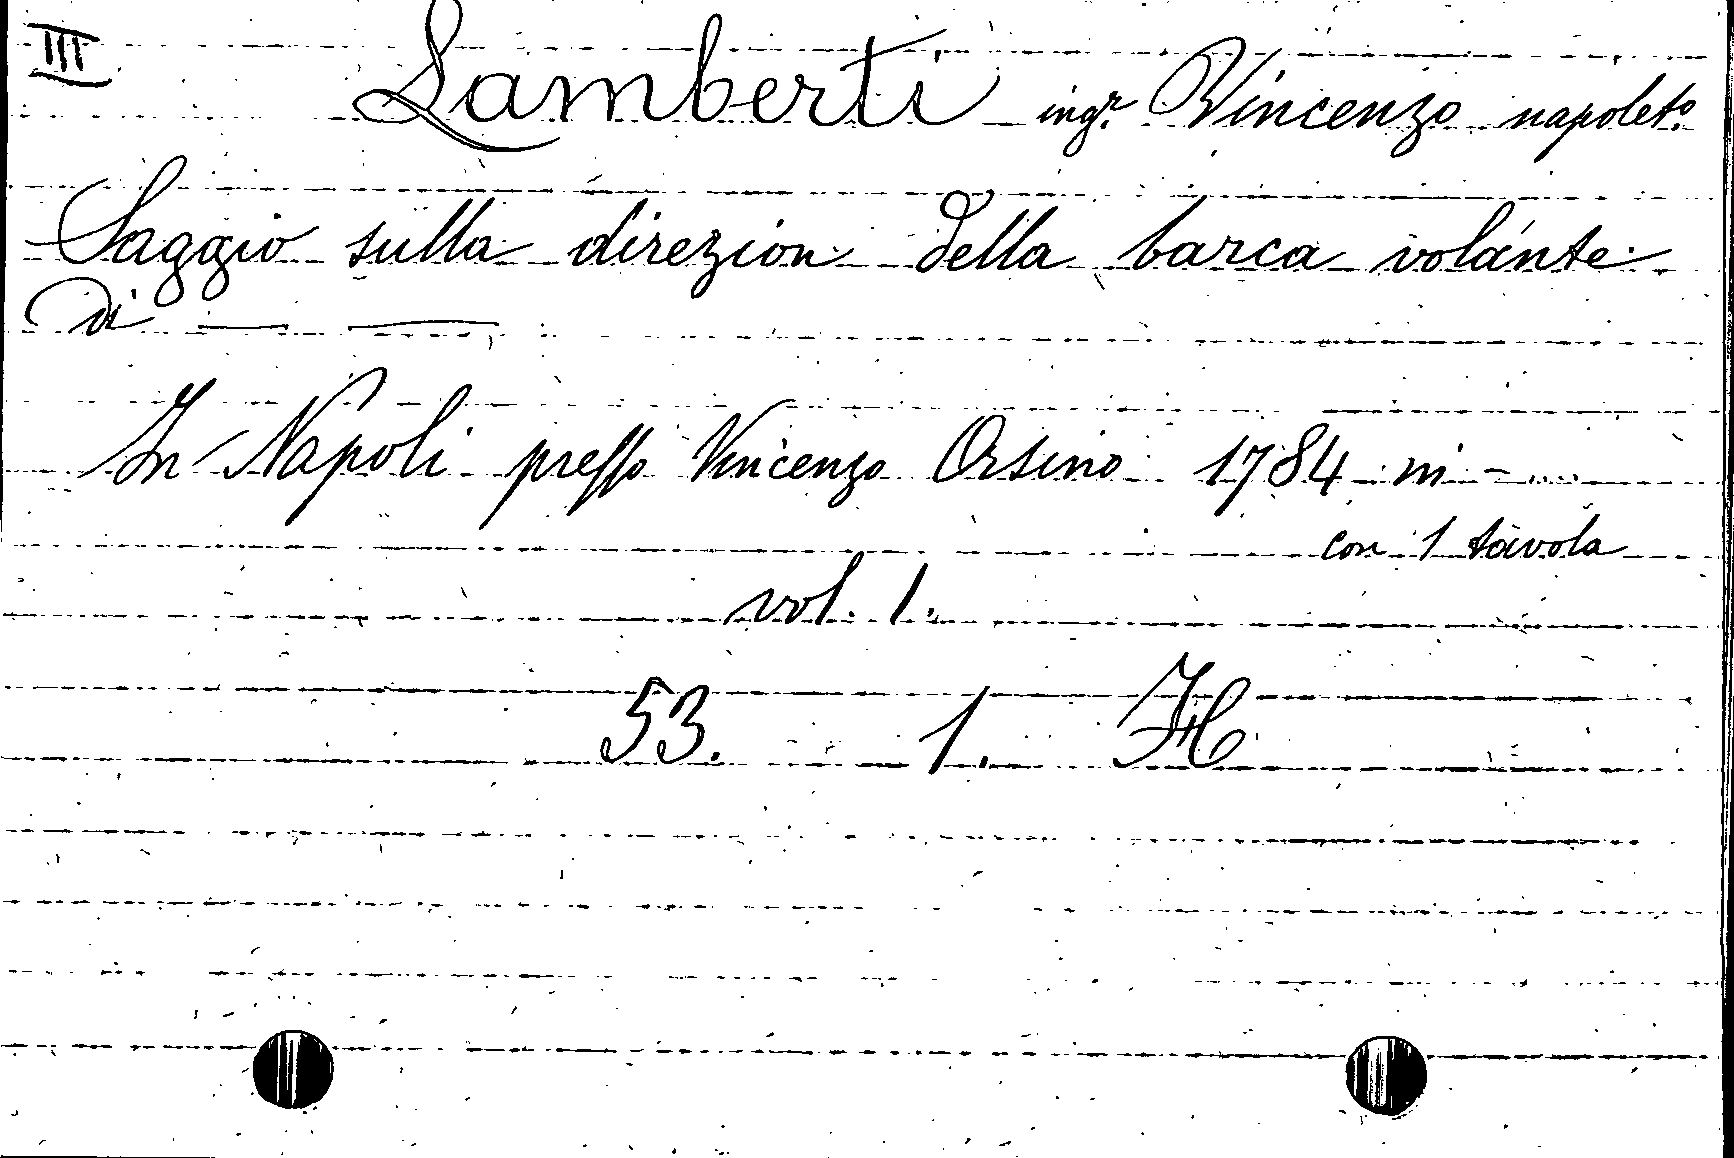 III
Lamberti ingr. Vincenzo napoleto.
Saggio sulla direzion della barca volante
di — —
In Napoli presso Vincenzo Orsino 1784 in - ....
con 1 tavola
vol. 1.
53. 1. H